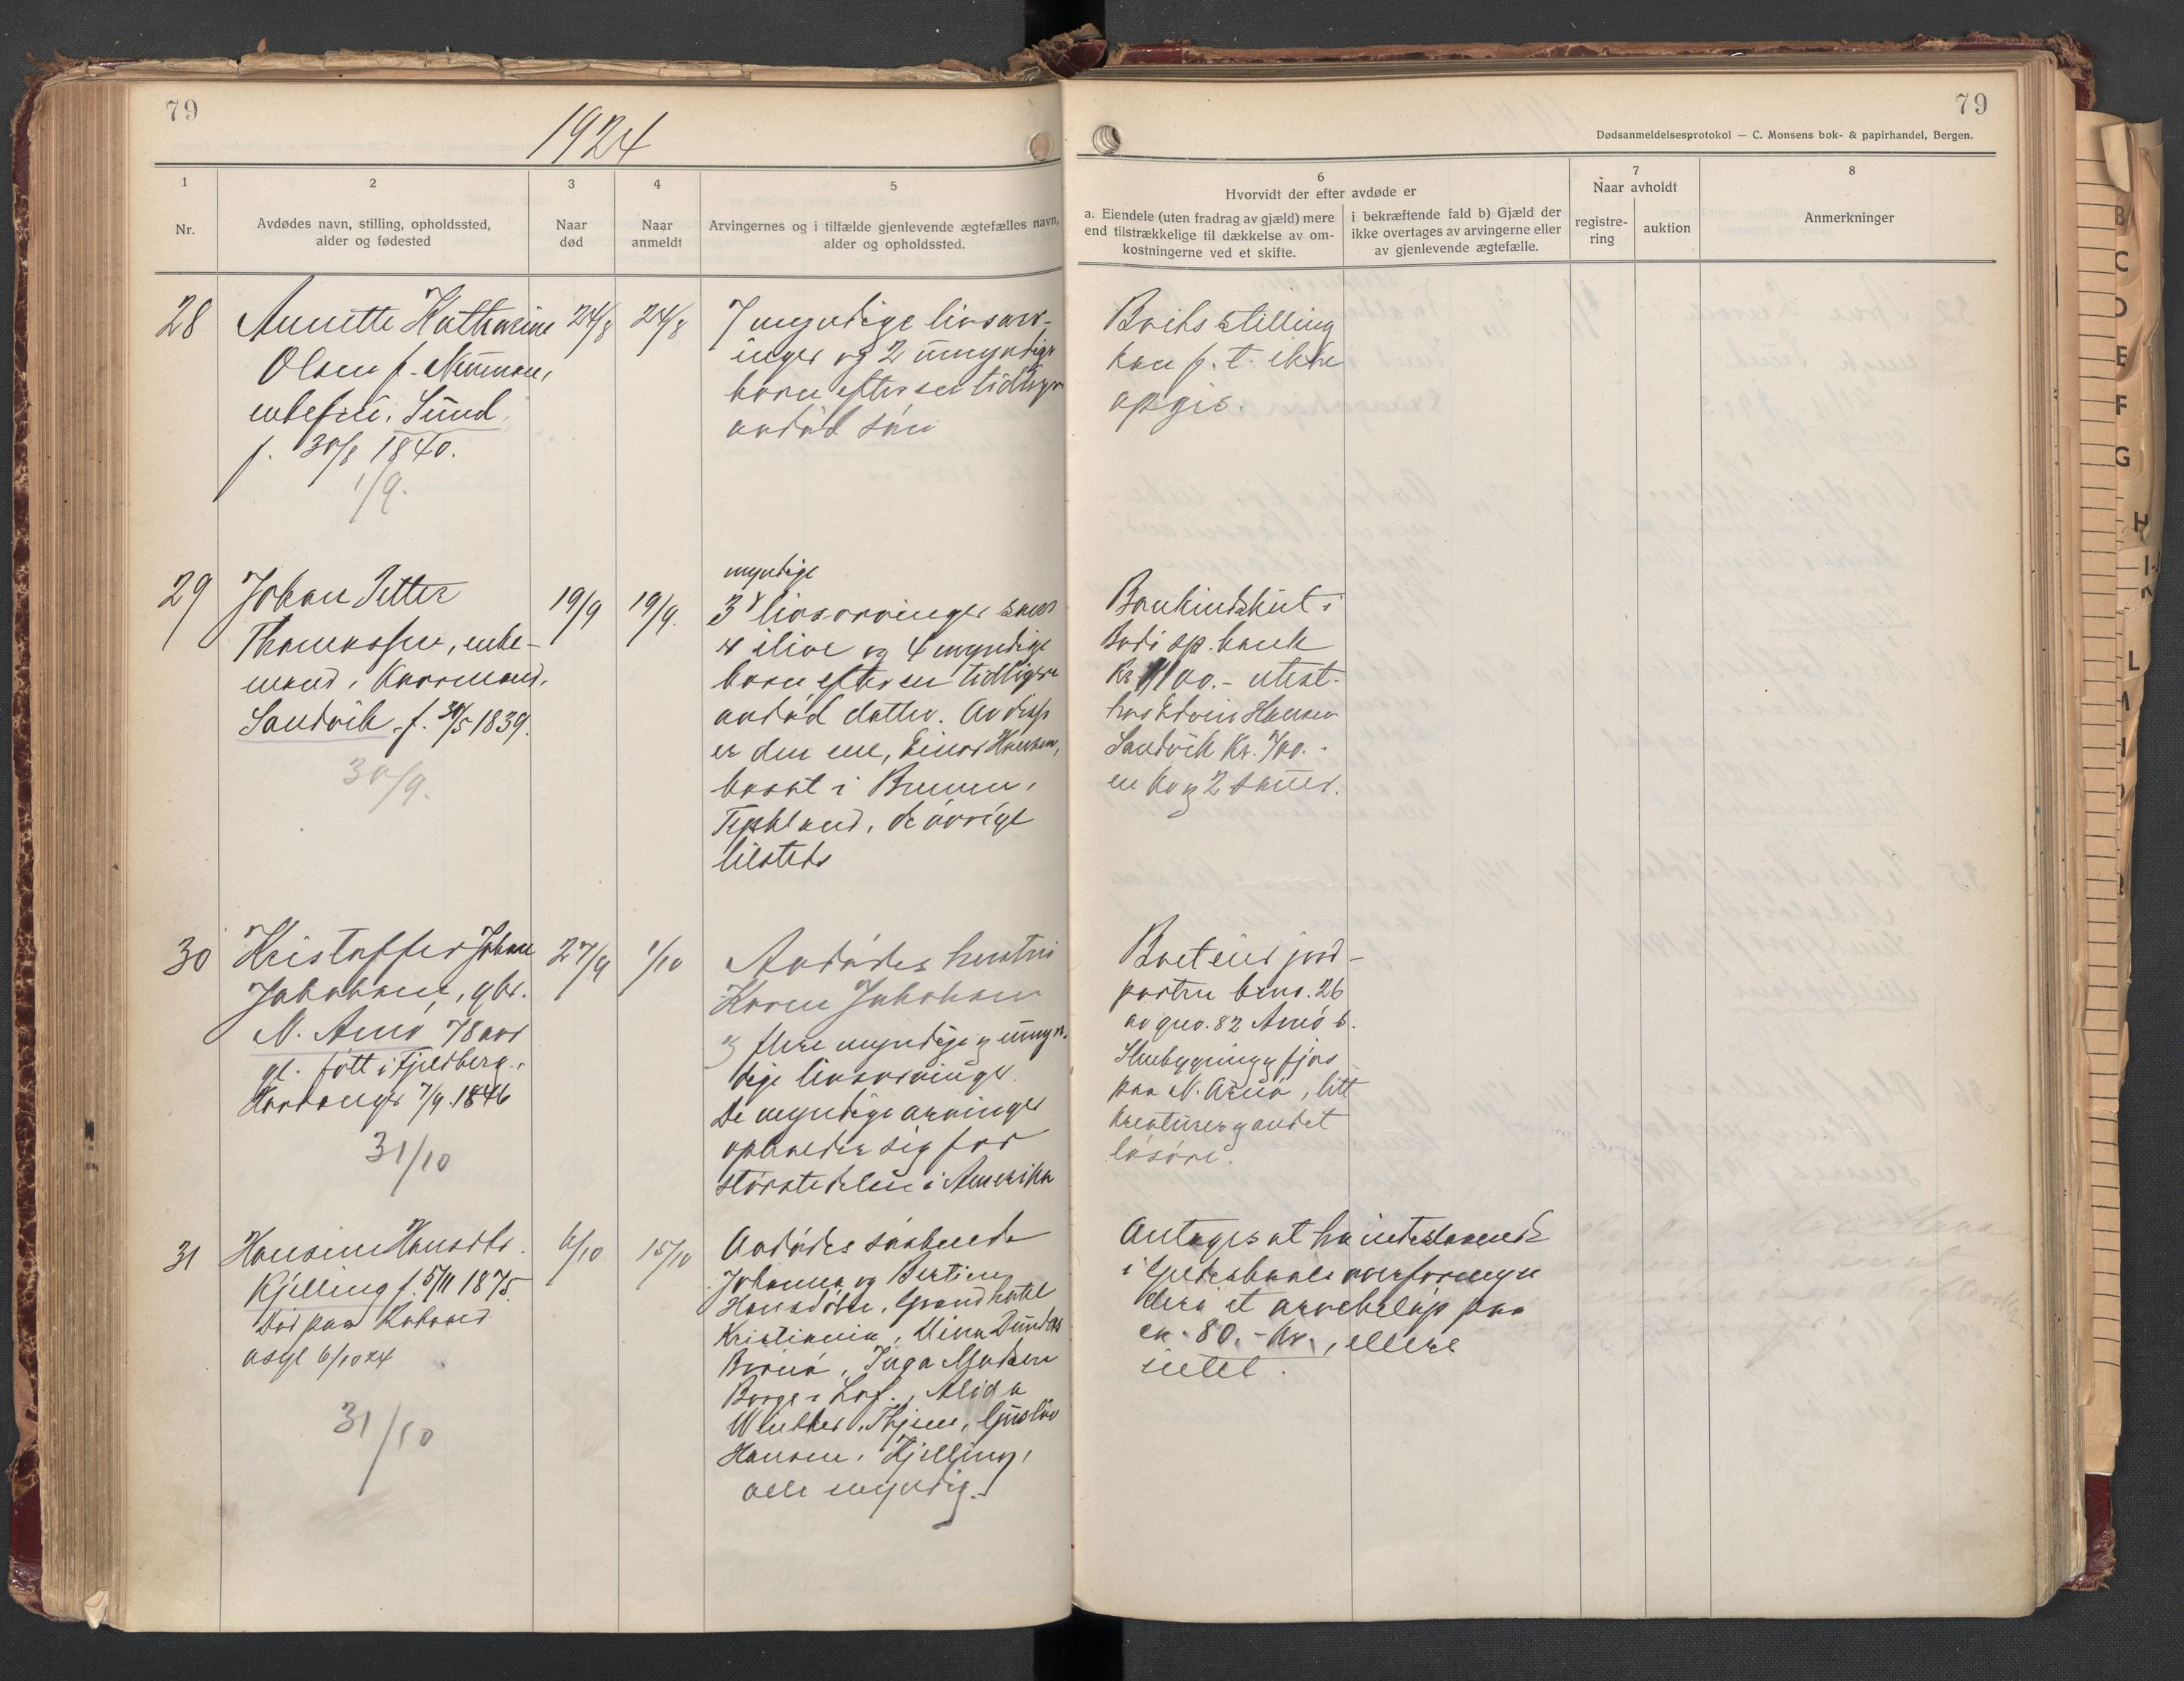 79
1924
1
Nr.
2
Avdødes navn, stilling, opholdssted,
alder og fødested
3
Naar
død
4
Naar
anmeldt
5
Arvingernes og i tilfælde gjenlevende ægtefælles navn,
alder og opholdssted.
28
Annette Katharine
Olsen f. Neuman,
enkefru, Sund.
f. 30/8 1840.
1/9.
24/8
24/8
7 myndige livsarv-
inger og 2 umyndige
barn efter en tidligere
avdød søn
29
Johan Petter
Thomassen, enke-
mand,
Sandvik. f. 30/5 1839.
30/9.
19/9
19/9.
myndige
3 livsarvinger
ilive og 4 myndige
barn efter en tidligere
avdød datter. Av disse
er den ene, Einar Hansen,
bosat i Bremen,
Tyskland, de øvrige
tilsteds
30
Kristoffer Johan
Jakobsen, gbr.
N. Arnø 78 aar
gl. født i Fjeldberg,
Hardanger 7/9 1846
31/10
27/9
1/10
Avdødes hustru
Karen Jakobsen
og flere myndige og umyn-
dige livsarvinger.
De myndige arvinger
opholder sig for
størstedelen i Amerika
31
Hansine Hansdtr.
Kjelling f. 5/11 1875.
Død paa
asyl 6/10 24
31/10
6/10
15/10
Avdødes søskende
Johanna og Bertine
Hansdøtre, Grand hotel
Kristiania, Mina
Inga Madsen
Borge i Lof., Alida
Winther, Gustav
Hansen, Kjelling,
alle myndig.
79
Dødsanmeldelsesprotokol — C. Monsens bok- & papirhandel, Bergen.
6
Hvorvidt der efter avdøde er
a. Eiendele (uten fradrag av gjæld) mere
end tilstrækkelige til dækkelse av om-
kostningerne ved et skifte.
i bekræftende fald b) Gjæld der
ikke overtages av arvingerne eller
av gjenlevende ægtefælle.
7
Naar avholdt
registre-
ring
auktion
8
Anmerkninger
Boets stilling
kan p. t. ikke
opgis.
Bankindskut i
Bodø sp. bank
Kr 1100.- utest.
hos Edvin Hansen
Sandvik Kr. 700.-
en ko og 2 sauer.
Boet eier jord-
parten bno. 26
av gno. 82 Arnø
Stuebygning og fjøs
paa N. Arnø, litt
kreaturer og andet
løsøre.
Antages at ha indestaaende
i Gildeskaals overformyn
deri et arvebeløp paa
ca. 80.- kr., ellers
intet.
B
C
D
E
F
G
H
I-J
K
L
M